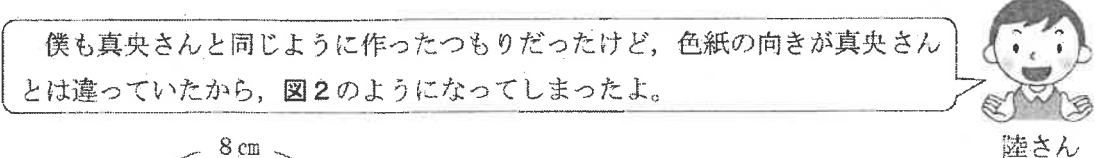 僕も真央さんと同じように作ったつもりだったけど，色紙の向きが真央さん
とは違っていたから，図2のようになってしまったよ。
陸さん
8cm